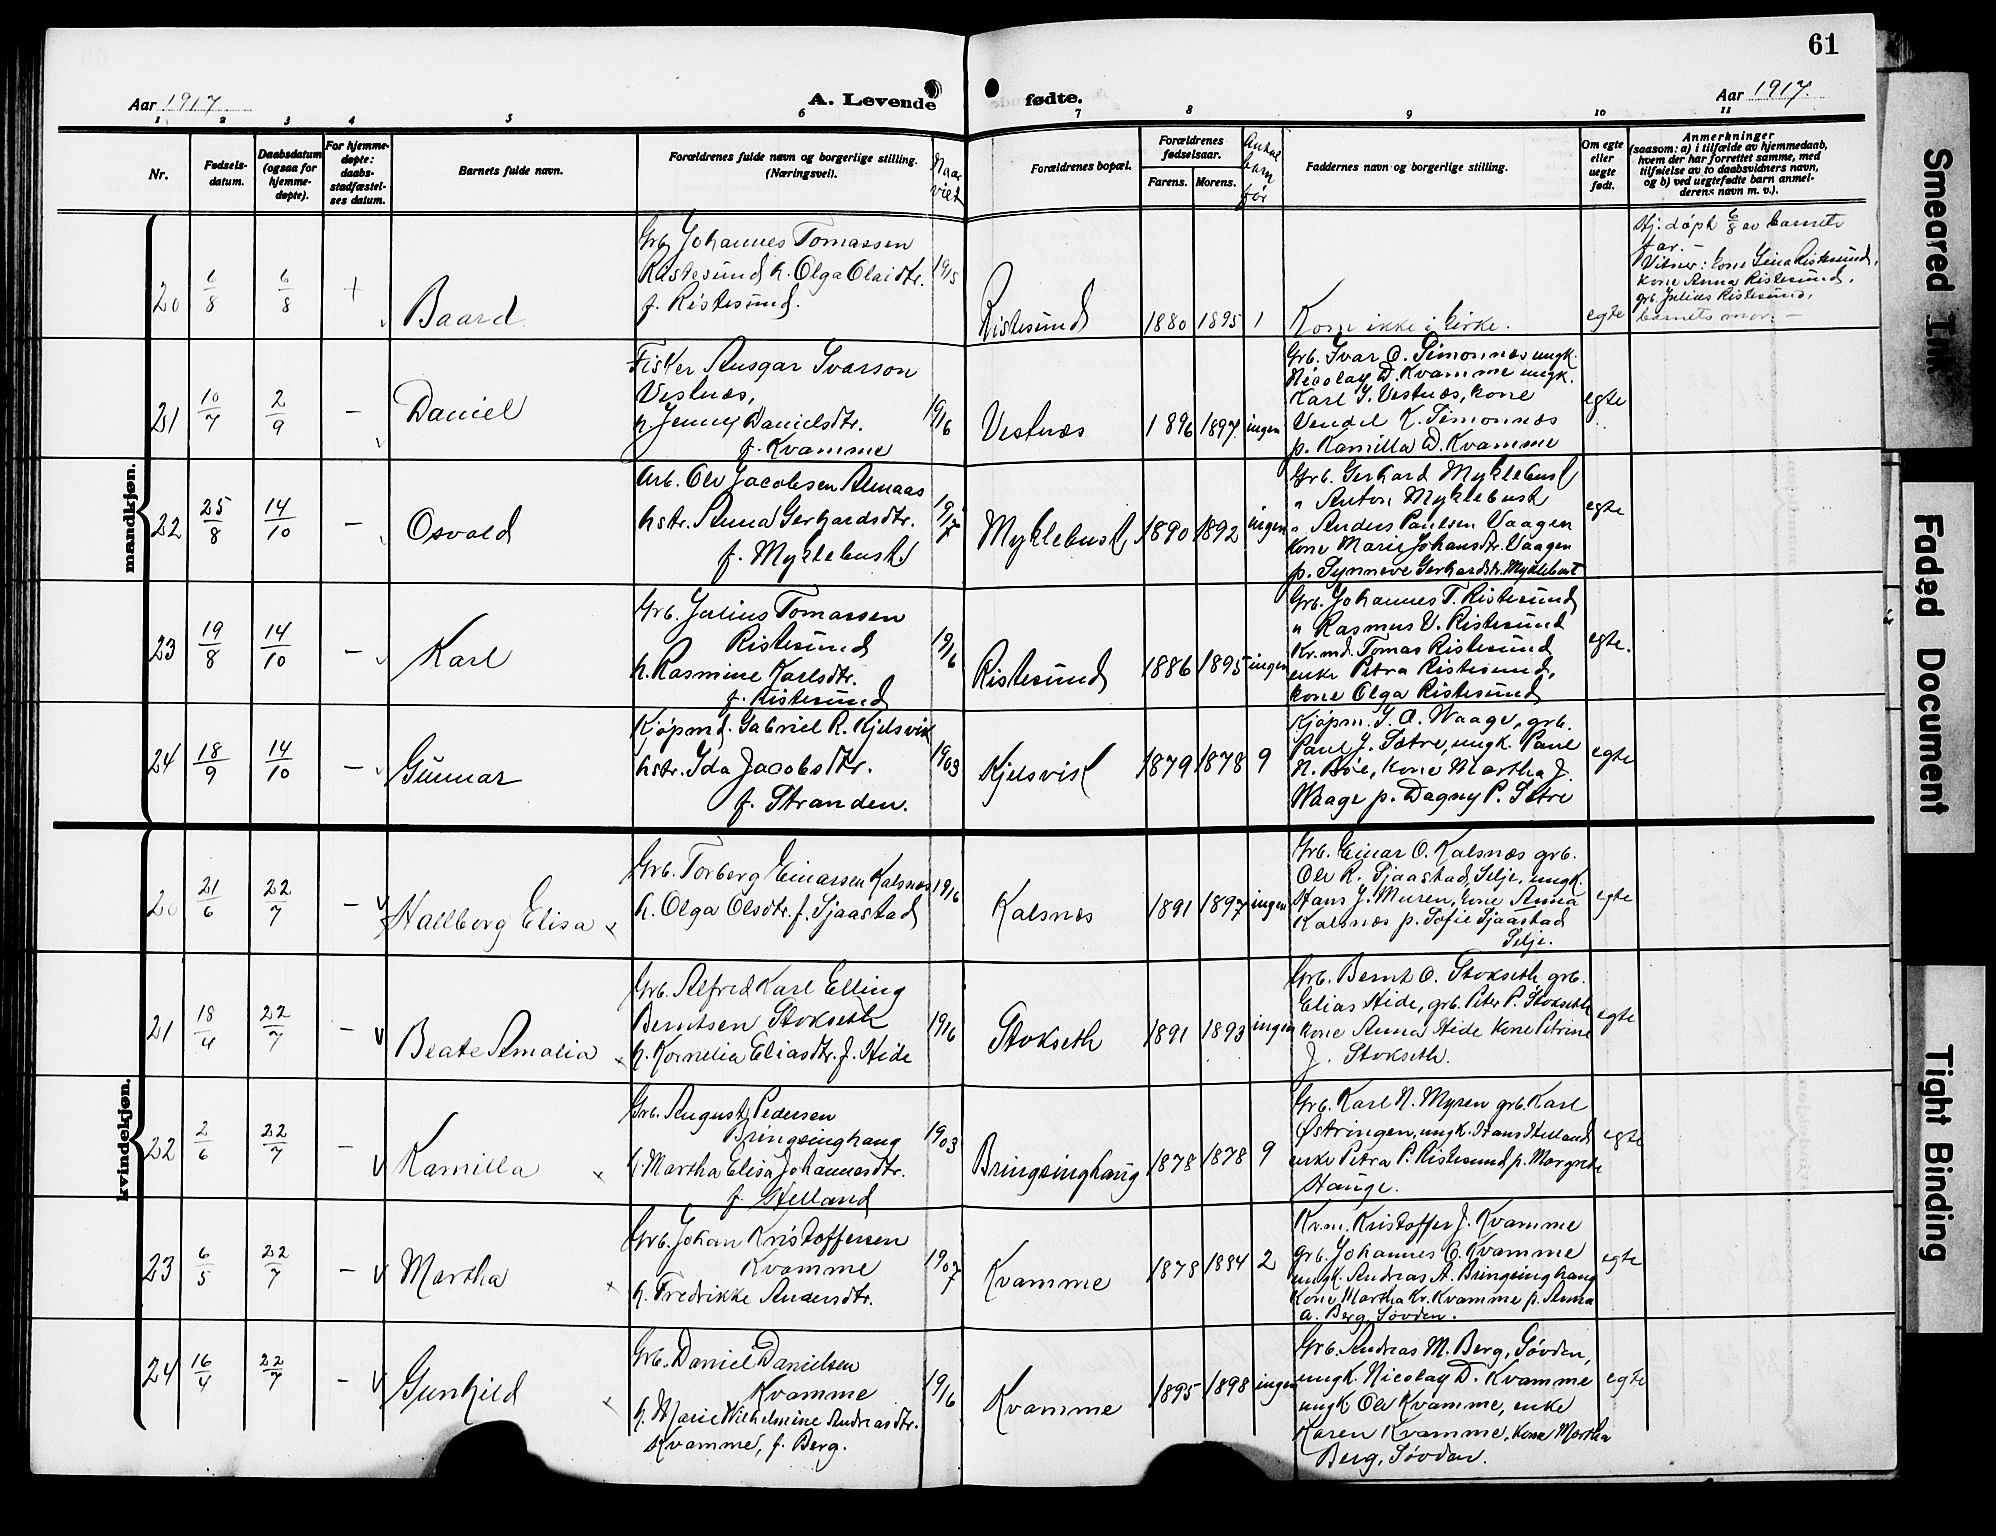 61
Aar 1917
A. Levende fødte.
Aar 1917.
1 2 3 4 5 6 7 8 9 10 11
Nr.
Fødsels-
datum.
Daabsdatum
(ogsaa for
hjemme-
døpte).
For hjemme-
døpte:
daabs-
stadfæstel-
ses datum.
Barnets fulde navn.
Forældrenes fulde navn og borgerlige stilling.
(Næringsvei).
Naar
viet
Forældrenes bopæl.
Forældrenes
fødselsaar.
Farens. Morens.
Antal
barn
før
Faddernes navn og borgerlige stilling.
Om egte
eller
uegte
født.
Anmerkninger
(saasom: a) i tilfælde av hjemmedaab,
hvem der har forrettet samme, med
tilføielse av to daabsvidners navn,
og b) ved uegtefødte barn anmel-
derens navn m. v.).
mandkjøn.
20 6/8 6/8 + Baard
Grb. Johannes Tomassen
Ristesund h. Olga Olaidtr.
f. Ristesund.
1915 Ristesund 1880 1895 1
Kom ikke i kirke.
egte
Hj: døpt 6/8 av barnets
far. -
Vitner: kone Lina Ristesund,
kone Anna Ristesund,
grb. Julius Ristesund,
barnets mor. -
21 10/7 2/9 - Daniel
Fisker Ansgar Ivarson
Vestnæs,
h. Jenny Danielsdtr.
f. Kvamme
1916 Vestnæs 1896 1897 ingen
Grb. Ivar O. Simonnæs ungk.
Nicolay D. Kvamme ungk.
Karl I. Vestnæs, kone
Vendel K. Simonnæs
p. Kamilla D. Kvamme
egte
22 25/8 14/10 - Osvald
Arb. Ole Jacobsen Almaas
hstr. Anna Gerhardsdtr.
f. Myklebust
1917 Myklebust 1890 1892 ingen
Grb. Gerhard Myklebust
" Anton Myklebust
" Anders Paulsen Vaagen
Kone Marie Johansdtr. Vaagen
p. Synneve Gerhardsdtr. Myklebust
egte
23 19/8 14/10 - Karl
Grb. Julius Tomassen
Ristesund
h. Rasmine Karlsdtr.
f. Ristesund
1916 Ristesund 1886 1895 ingen
Grb. Johannes T. Ristesund
" Rasmus V. Ristesund
Kr.md. Tomas Ristesund
enke Petra Ristesund,
kone Olga Ristesund
egte.
24 18/9 14/10 - Gunnar
Kjøpmd. Gabriel R. Kjelsvik
hstr. Ida Jacobsdtr.
f. Stranden.
1903 Kjelsvik 1879 1878 9
Kjøpm. J. A. Waage, grb.
Paul J. Sætre, ungk. Paul
N. Bøe, kone Martha J.
Waage p. Dagny P. Sætre
egte
kvindekjøn.
20 21/6 22/7 - Hallborg Elisa
Grb. Torberg Einarsen Kalsnæs
h. Olga Olsdtr. f. Sjaastad
1916 Kalsnæs 1891 1897 ingen
Grb. Einar O. Kalsnæs grb.
Ole R. Sjaastad, Selje, ungk.
Hans J. Muren, kone Anna
Kalsnæs p. Sofie Sjaastad
Selje.
egte
21 18/4 22/7 - Beate Amalia
Grb. Alfred Karl Elling
Berntsen Stokseth
h. Kornelia Eliasdtr. f. Hide
1916 Stokseth 1891 1893 ingen
Grb. Bernt O. Stokseth grb.
Elias Hide, grb. Peter P. Stokseth
kone Anna Hide kone Petrine
J. Stokseth.
egte
22 2/6 22/7 - Kamilla
Grb. August Pedersen
Bringsinghaug
h. Martha Elisa Johannesdtr.
f. Helland
1903 Bringsinghaug 1878 1878 9
Grb. Karl N. Myren grb. Karl
Østringen, ungk. Hans Helland
enke Petra P. Ristesund p. Margrethe
Hauge.
egte
23 6/5 22/7 - Martha
Grb. Johan Kristoffersen
Kvamme
h. Fredrikke Andersdtr.
1907 Kvamme 1878 1884 2
Kv.m. Kristoffer J. Kvamme
grb. Johannes O. Kvamme
ungk. Andreas A. Bringsinghaug
kone Martha Kr. Kvamme p. Anna
A. Berg, Søvden.
egte
24 16/4 22/7 - Gunhild
Grb. Daniel Danielsen
Kvamme
h. Marie Wilhelmine Andreasdtr.
Kvamme, f. Berg.
1916 Kvamme 1895 1898 ingen
Grb. Andreas M. Berg, Søvden,
ungk. Nicolay D. Kvamme
ungk. Ole Kvamme, enke
Karen Kvamme, kone Martha
Berg, Søvden.
egte
Smeared Ink
Faded Document
Tight Binding